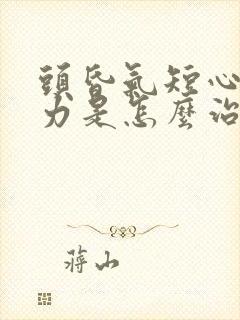 頭昏氣短心
力是怎麼治
蔣山